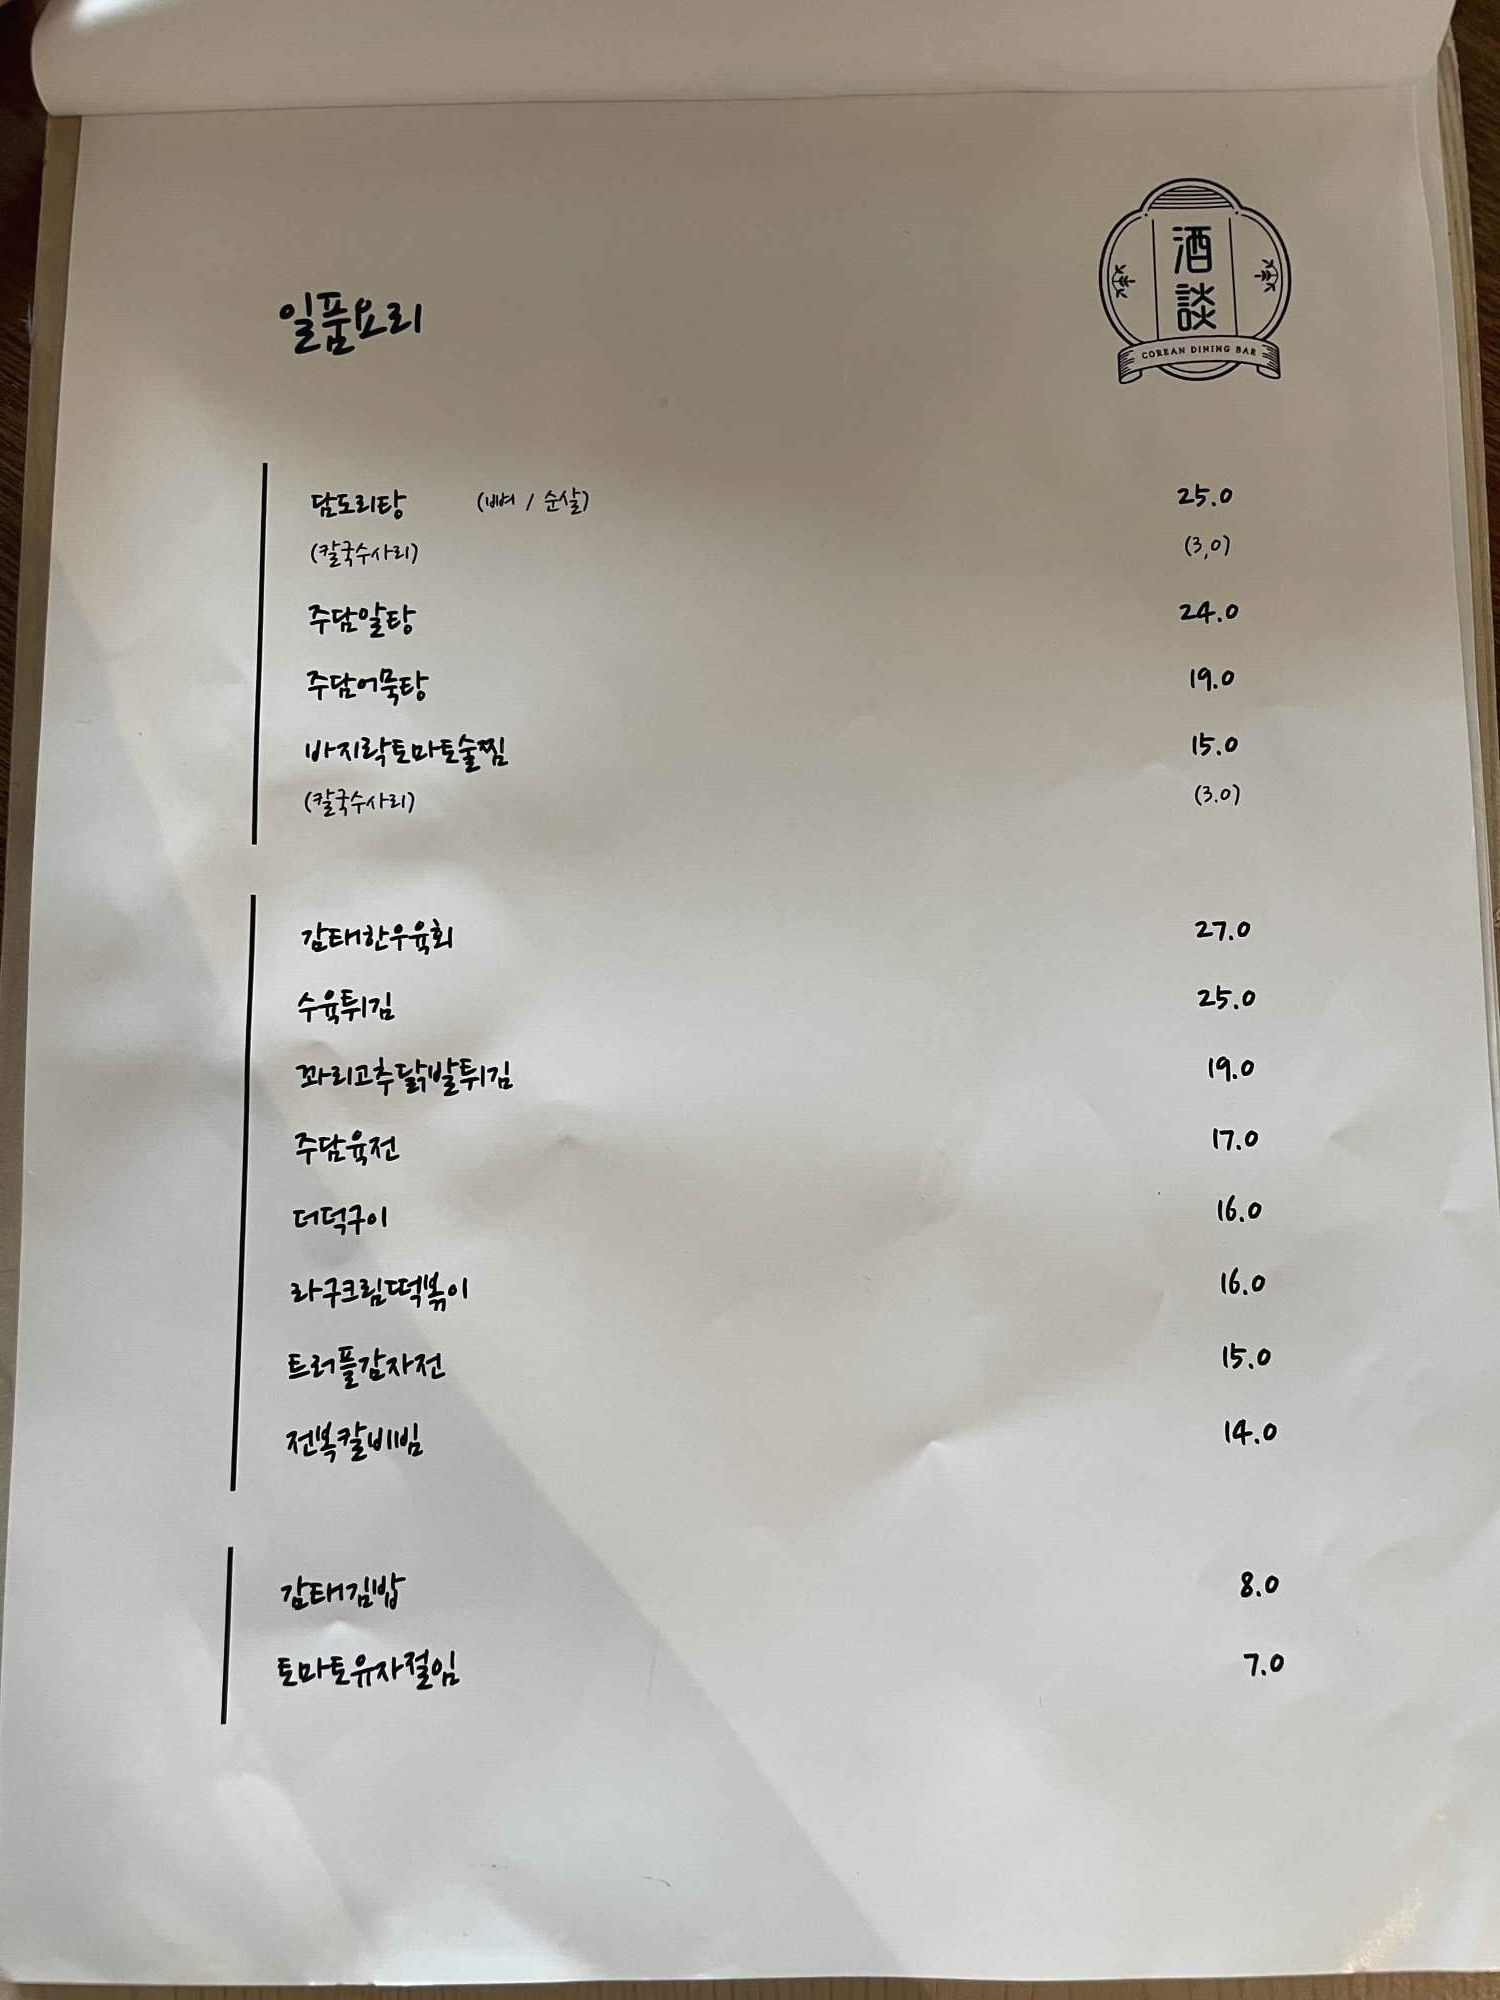 酒
談
COREAN DINING BAR
일품요리
담도리탕 (뼈 / 순살) 25.0
(칼국수사리) (3,0)
주담알탕 24.0
주담어묵탕 19.0
바지락토마토술찜 15.0
(칼국수사리) (3.0)
감태한우육회 27.0
수육튀김 25.0
꽈리고추닭발튀김 19.0
주담육전 17.0
더덕구이 16.0
라구크림떡볶이 16.0
트러플감자전 15.0
전복칼비빔 14.0
감태김밥 8.0
토마토유자절임 7.0